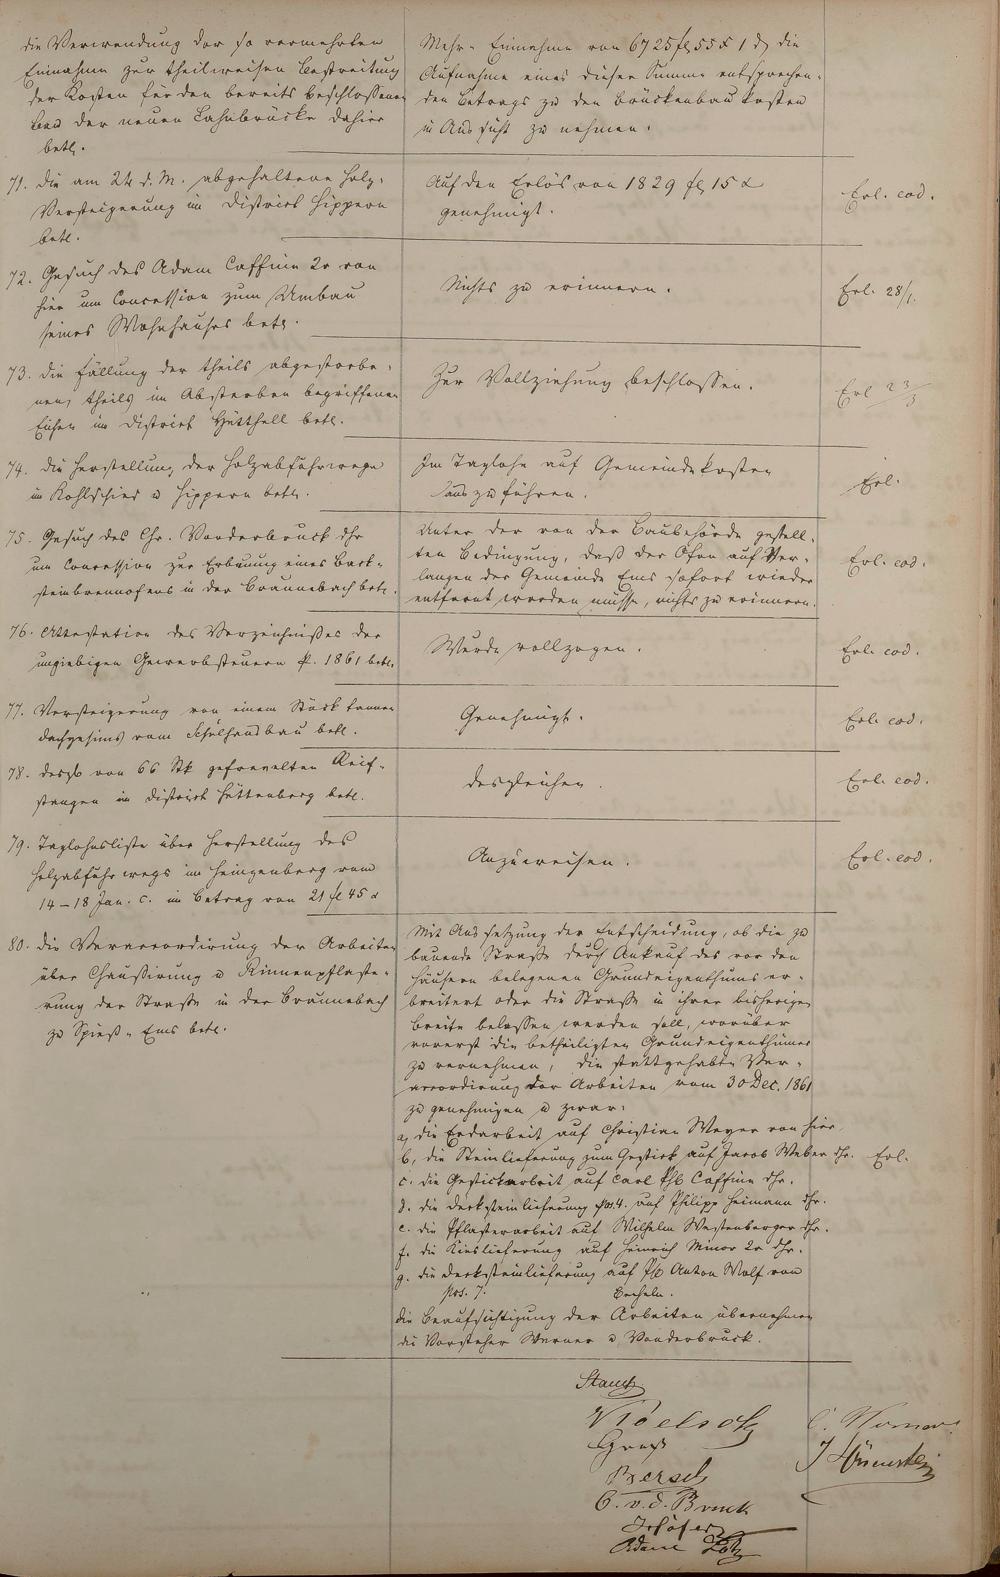 die Verwendung der so vermehrten
Einnahme zur theilweisen Bestreitung
der Kosten für den bereits beschlossenen
Bau der neuen Lahnbrücke dahier
betr.
Mehr-Einnahme von 6725 fl 55 x 1 d die
Aufnahme eines dieser Summe entsprechen-
den Betrags zu den Brückenbaukosten
in Aussicht zu nehmen.
71. Die am 24 d. M. abgehaltene Holz-
Versteigerung im District Hippern
betr.
Auf den Erlös von 1829 fl 15 x
genehmigt.
Erl. eod.
72. Gesuch des Adam Caffine 2r von
hier um Concession zum Umbau
seines Wohnhauses betr.
Nichts zu erinnern.
Erl. 28/1.
73. Die Fällung der theils abgestorbe-
nen, theils im Absterben begriffenen
Eichen im District Hütthell betr.
Zur Vollziehung beschlossen.
Erl 23/3
74. Die Herstellung der Holzabfuhrwege
im Kohlschied u Hippern betr.
Im Taglohn auf Gemeindekosten
auszuführen.
Erl.
75. Gesuch des Chr. Vonderbruck dhr
um Concession zur Erbauung eines Back-
steinbrennofens in der Braunebach betr.
Unter der von der Baubehörde gestell-
ten Bedingung, daß der Ofen auf Ver-
langen der Gemeinde Ems sofort wieder
entfernt werden müsse, nichts zu erinnern.
Erl. eod.
76. Attestation des Verzeichnißes der
ungiebigen Gewerbsteuern p. 1861 betr.
Wurde vollzogen.
Erl. eod.
77. Versteigerung von einem Stück tannen
Dachgesims vom Schulhausbau betr.
Genehmigt.
Erl. eod.
78. desgl. von 66 Stk gefrevelten Reif-
stangen im District Hüttenberg betr.
desgleichen.
Erl. eod.
79. Taglohnsliste über Herstellung des
Holzabfuhrwegs im Heingenberg vom
14-18 Jan. c. im Betrag von 21 fl 45 x
Anzuweisen.
Erl. eod.
80. Die Veraccordirung der Arbeiten
über Chaussirung u Rinnenpflaste-
rung der Straße in der Braunebach
zu Spieß-Ems betr.
Mit Aussetzung der Entscheidung, ob die zu
bauende Straße durch Ankauf des vor den
Häusern belegenen Grundeigenthums er-
breitert oder die Straße in ihrer bisherigen
Breite belassen werden soll, worüber
vorerst die betheiligten Grundeigenthümer
zu vernehmen, die stattgehabte Ver-
accordirung der Arbeiten vom 30 Dec. 1861
zu genehmigen u zwar:
a, die Erdarbeit auf Christian Meyer von hier,
b, die Steinlieferung zum Gestick auf Jacob Weber dhr. Erl.
c. die Gestickarbeit auf Carl Phl Caffine dhr.
d. die Decksteinlieferung pos. 4. auf Philipp Heimann dhr.
e. die Pflasterarbeit auf Wilhelm Westenberger dhr.
f. die Kieslieferung auf Heinrich Minor 2r dhr.
g. die Decksteinlieferung auf Ph Anton Wolf von
pos. 7. Becheln.
Die Beaufsichtigung der Arbeiten übernehmen
die Vorsteher Werner u Vonderbruck.
Bersch
C. v. d. Bruck
Adam